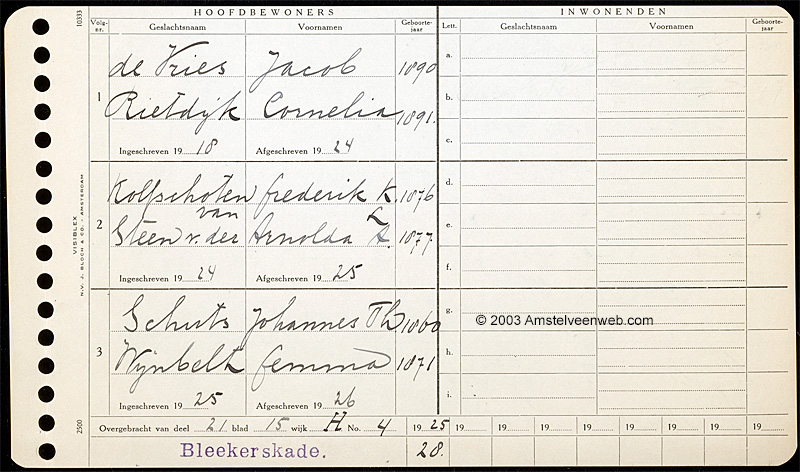 HOOFDBEWONERS INWONENDEN
Volg-nr. Geslachtsnaam Voornamen Geboorte-jaar Lett. Geslachtsnaam Voornamen Geboorte-jaar
10333
a.
de Vries Jacob 1890
1 b.
Rietdijk Cornelia 1891.
c.
Ingeschreven 19 18 Afgeschreven 19 24
d.
Kolfschoten Frederik K. 1876
van L
2 e.
Steen v. der Arnolda A. 1877
f.
Ingeschreven 19 24 Afgeschreven 19 25
g.
Schuts Johannes Th 1860
© 2003 Amstelveenweb.com
3 h.
Wijnbelt Gemma 1871
i.
Ingeschreven 19 25 Afgeschreven 19 26
VISIBLEX
N.V. J. BLOCH & CO. - AMSTERDAM
2500
Overgebracht van deel 21 blad 15 wijk H No. 4 19 25 19 19 19 19 19 19 19
Bleekerskade. 28.